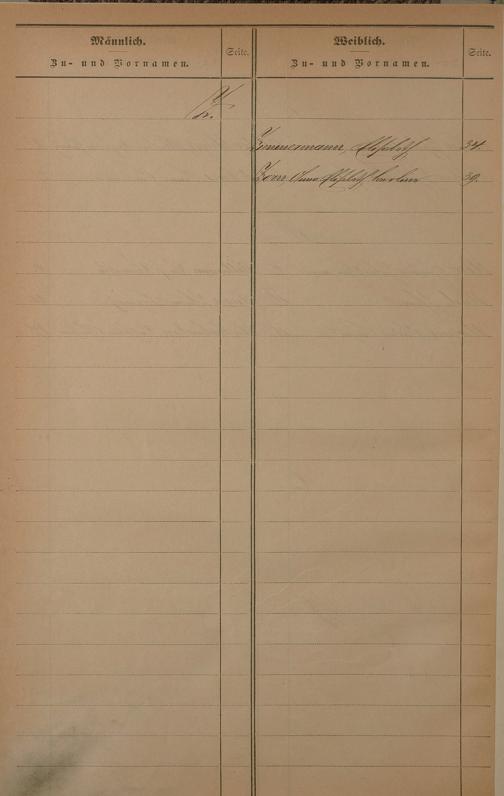 Männlich.
Zu- und Vornamen.
Seite.
Weiblich.
Zu- und Vornamen.
Seite.
Z.
Zimmermann, Elisabeth 34.
Zorn, Anna Elisabeth Karoline 39.